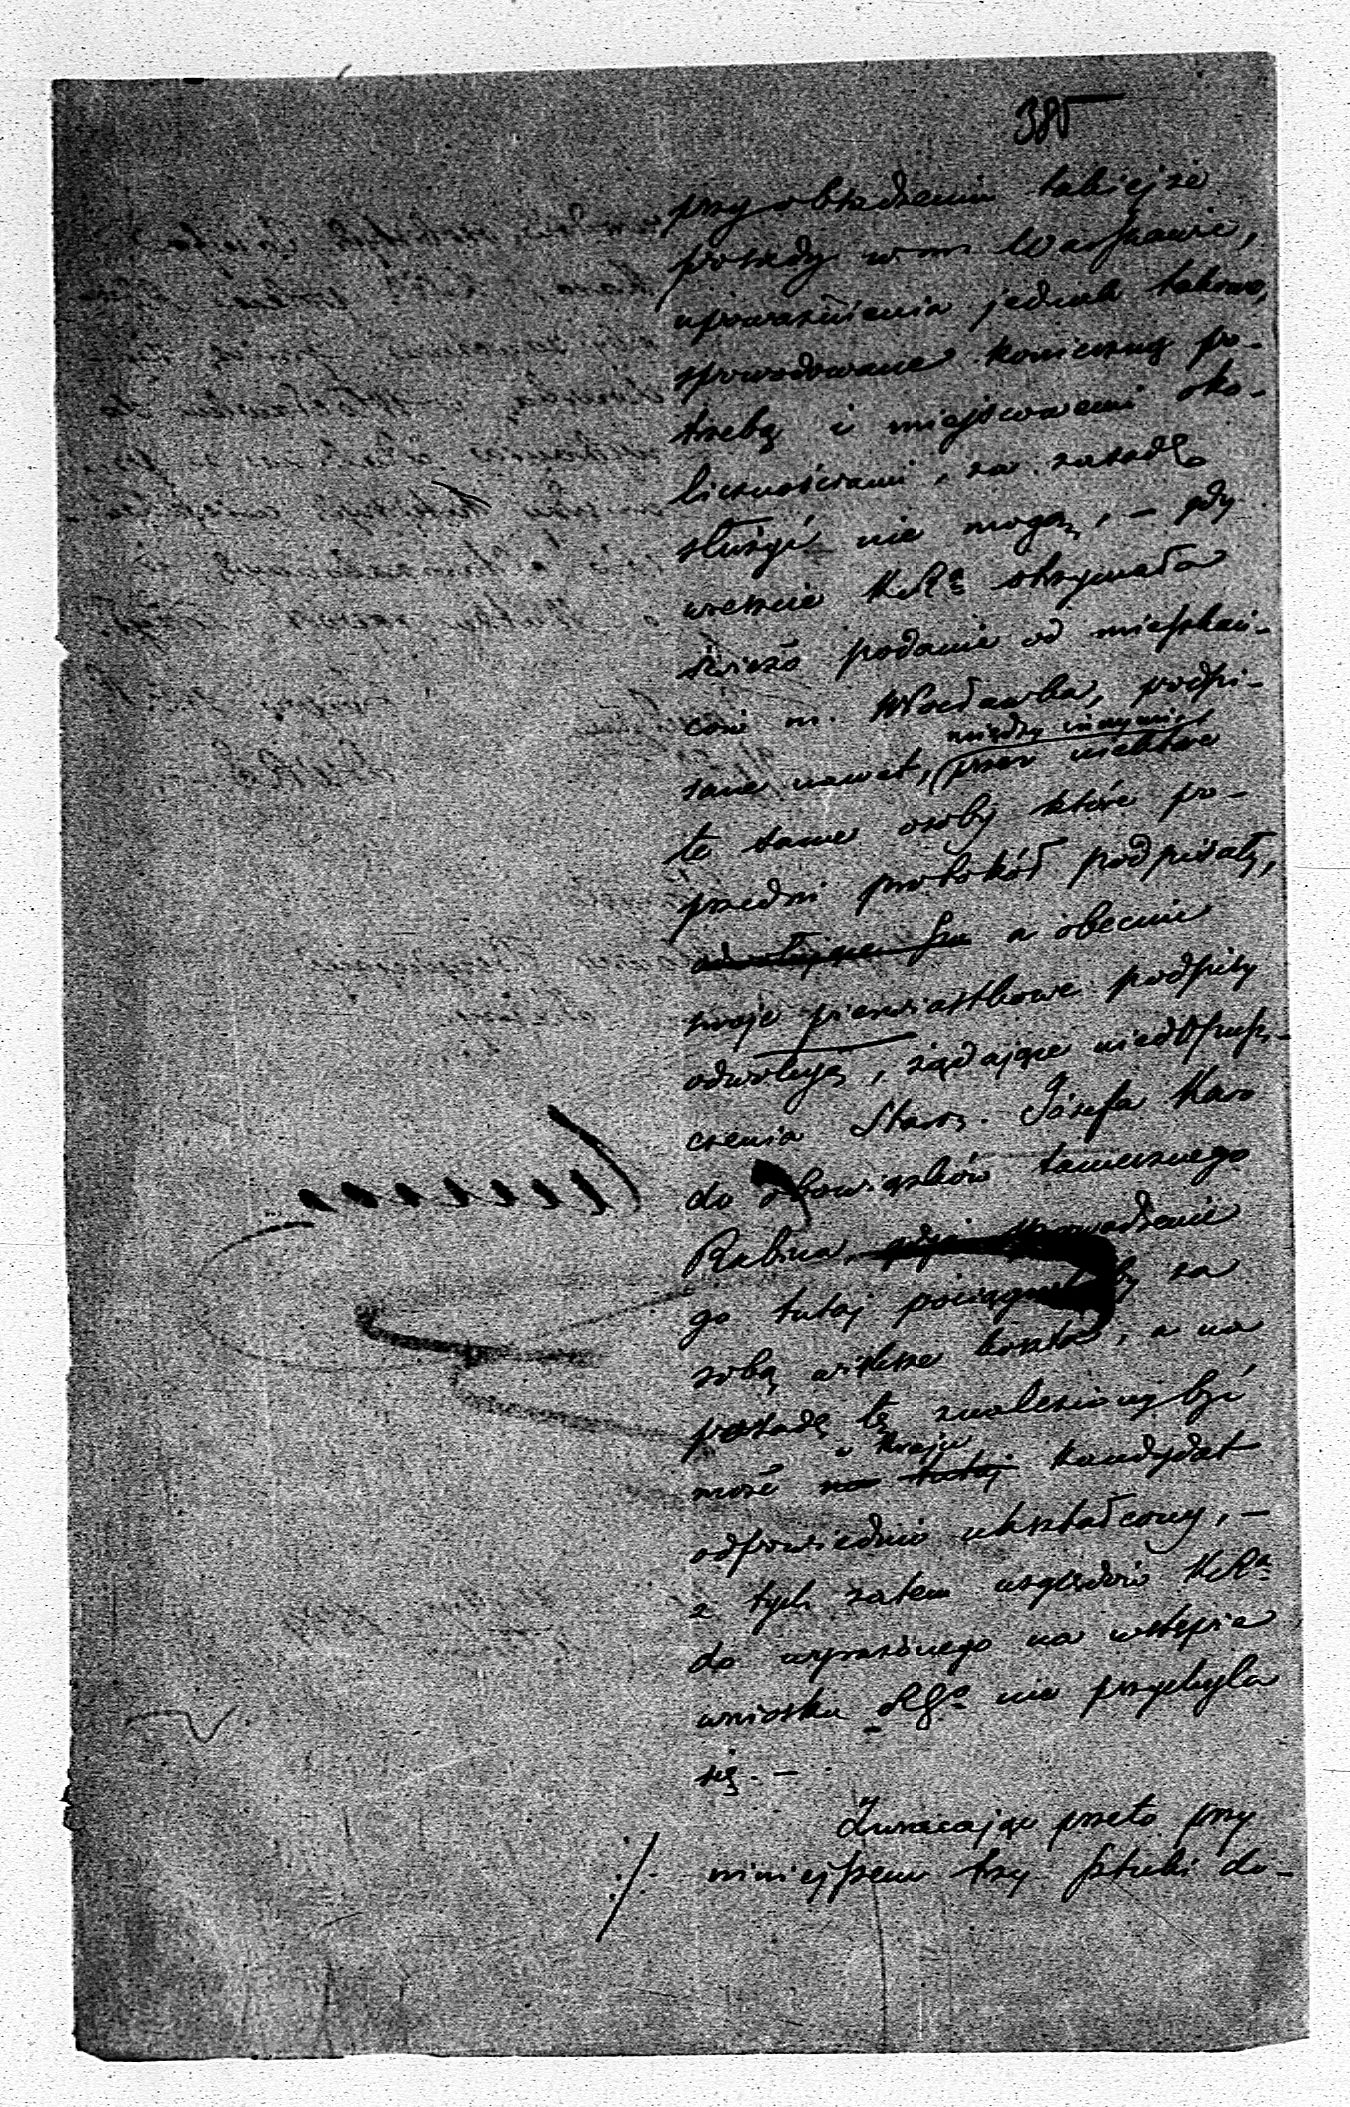 385
przy obsadzeniu takiejże
posady w m. Warszawie,
upoważnienia jednak takowe,
spowodowane konieczną po-
trzebą i miejscowemi oko-
licznościami, za zasadę
służyć nie mogą, – gdy
wreszcie KRa otrzymała
świeżo podanie od mieszkań-
ców m. Włocławka, podpi-
między innymi
sane nawet, przez niektóre
te same osoby które po-
przedni protokół podpisały,
a obecnie
swoje pierwiastkowe podpisy
odwołują, żądając niedopusz-
czenia Starz. Józefa Karo
do obowiązków tamecznego
Rabina, gdyż sprowadzenie
go tutaj pociągnęłoby za
sobą większe koszta, a na
posadę tę znaleziony być
w Kraju
może na tutaj kandydat
odpowiednio ukształcony, –
z tych zatem względów KRa
do wyrażonego na wstępie
wniosku RGo nie przychyla
się. –
Zwracając przeto przy
niniejszem trzy sztuki do-